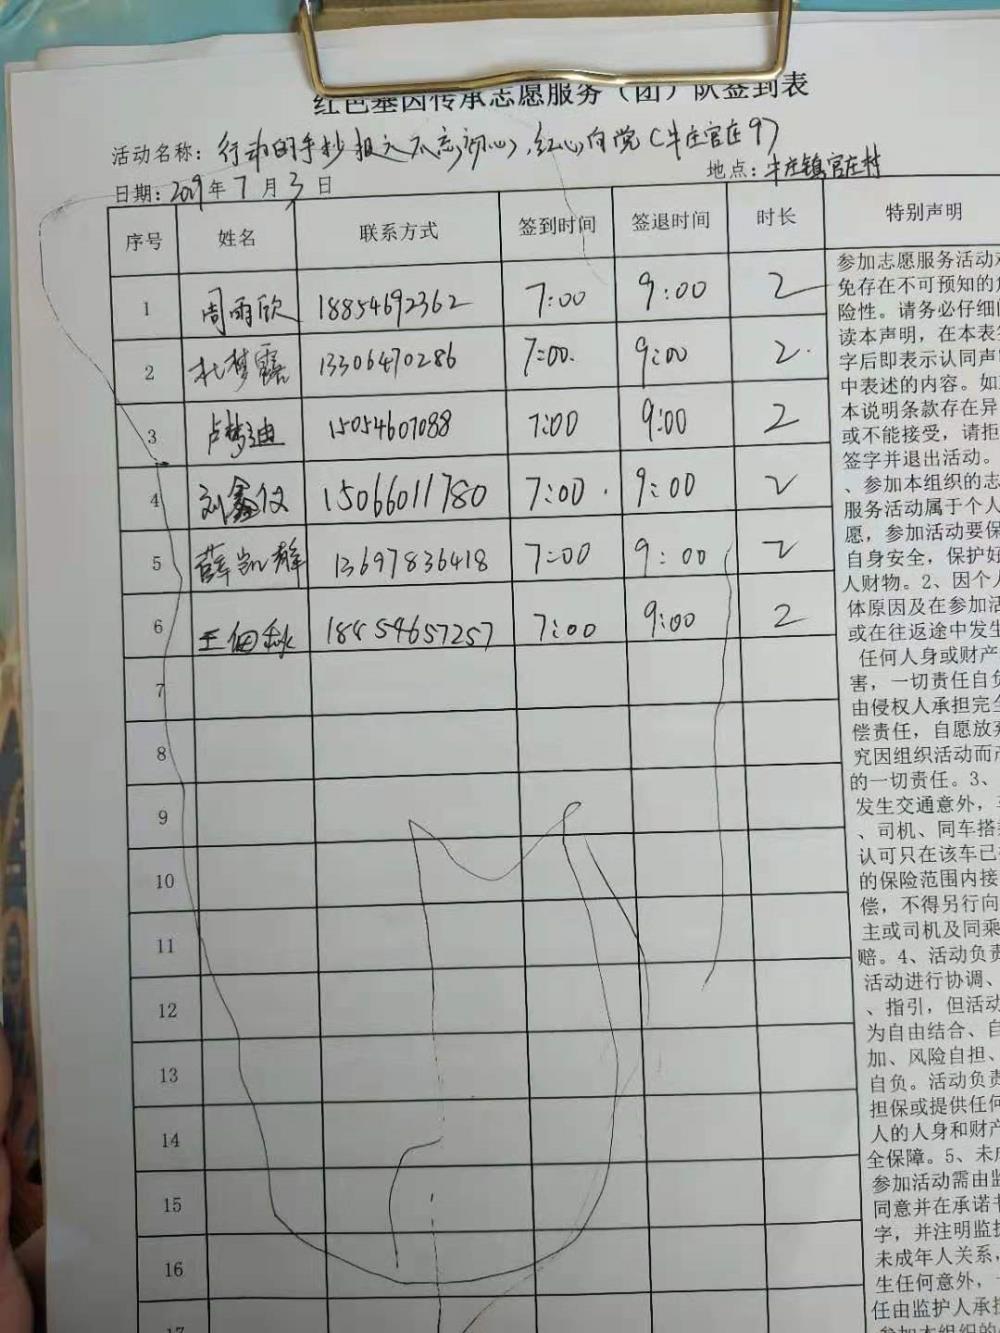 红色基因传承志愿服务（团）队签到表
活动名称：行动的手抄报之不忘初心，红心向党（牛庄官庄9）
地点：牛庄镇官庄村
日期：2019年7月3日
序号 姓名 联系方式 签到时间 签退时间 时长 特别声明
1 周雨欣 18854692362 7:00 9:00 2
2 杜梦露 13306470286 7:00 9:00 2
3 卢梦迪 15054607088 7:00 9:00 2
4 刘鑫仪 15066011780 7:00 9:00 2
5 薛凯静 13697836418 7:00 9:00 2
6 王佃 18454657257 7:00 9:00 2
7
8
9
10
11
12
13
14
15
16
17
参加志愿服务活动
免存在不可预知的
险性。请务必仔细
读本声明，在本表
字后即表示认同声
中表述的内容。如
本说明条款存在异
或不能接受，请拒
签字并退出活动。
、参加本组织的志
服务活动属于个人
愿，参加活动要保
自身安全，保护好
人财物。2、因个人
体原因及在参加活
或在往返途中发生
任何人身或财产
害，一切责任自负
由侵权人承担完全
偿责任，自愿放弃
究因组织活动而产
的一切责任。3、
发生交通意外，
、司机、同车搭
认可只在该车已
的保险范围内接
偿，不得另行向
主或司机及同乘
赔。4、活动负责
活动进行协调、
、指引，但活动
为自由结合、自
加、风险自担、
自负。活动负责
担保或提供任何
人的人身和财产
全保障。5、未成
参加活动需由监
同意并在承诺书
字，并注明监护
未成年人关系，
生任何意外，
任由监护人承担
参加本组织的